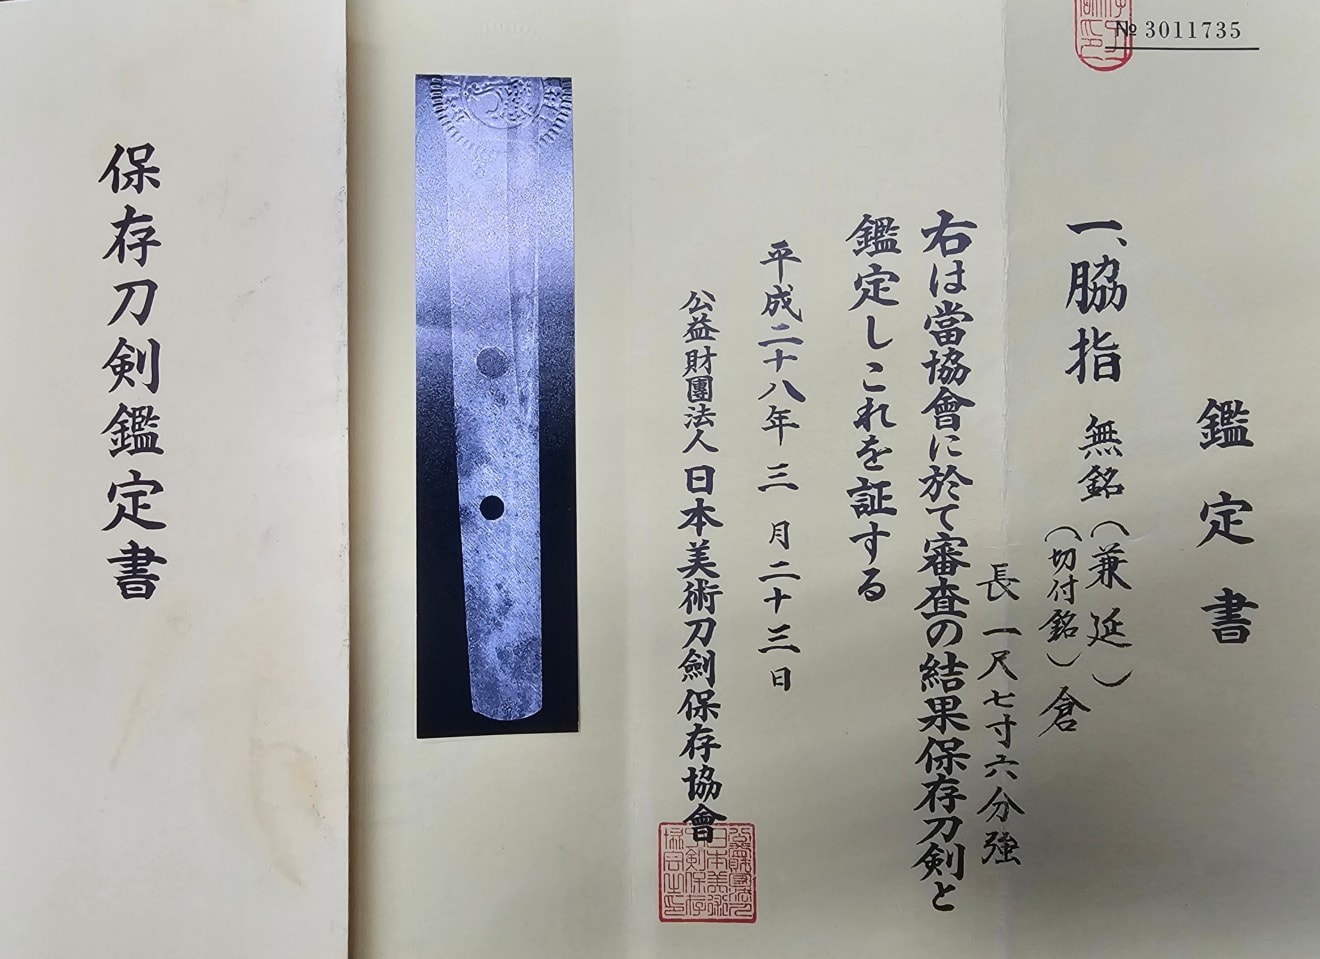 № 3011735
鑑定書
一、脇指 無銘(兼延)
(切付銘)倉
長 一尺七寸六分強
右は當協會に於て審査の結果保存刀剣と
鑑定しこれを証する
平成二十八年三月二十三日
公益財團法人日本美術刀劍保存協會
保存刀剣鑑定書